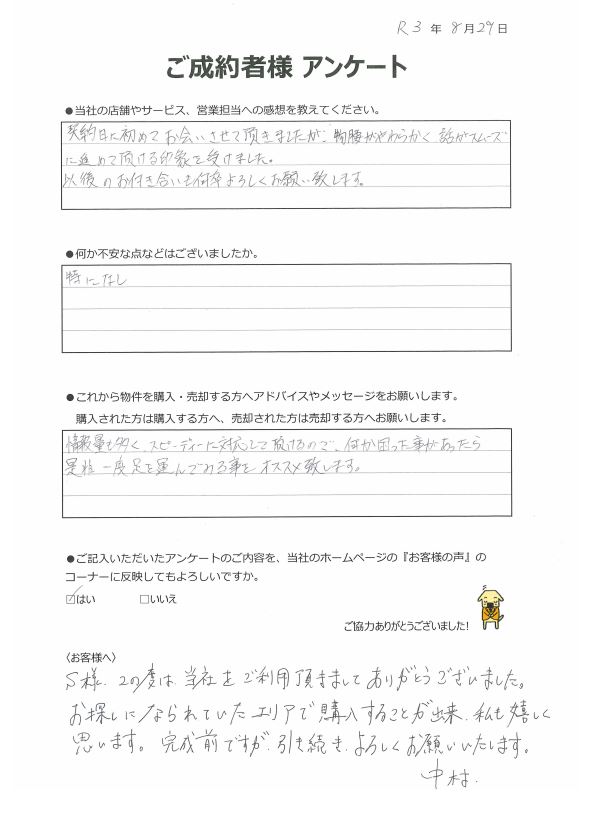 R3年8月29日
ご成約者様 アンケート
●当社の店舗やサービス、営業担当への感想を教えてください。
契約日に初めてお会いさせて頂きましたが、物腰がやわらかく 話がスムーズ
に進めて頂ける印象を受けました。
以後のお付き合いも何卒よろしくお願い致します。
●何か不安な点などはございましたか。
特になし
●これから物件を購入・売却する方へアドバイスやメッセージをお願いします。
購入された方は購入する方へ、売却された方は売却する方へお願いします。
情報量も多く、スピーディーに対応して頂けるので、何か困った事があったら
是非一度足を運んでみる事をオススメ致します。
●ご記入いただいたアンケートのご内容を、当社のホームページの『お客様の声』の
コーナーに反映してもよろしいですか。
☑はい □いいえ
ご協力ありがとうございました！
〈お客様へ〉
S様、この度は当社をご利用頂きましてありがとうございました。
お探しになられていたエリアで購入することが出来、私も嬉しく
思います。完成前ですが、引き続き、よろしくお願いいたします。
中村.